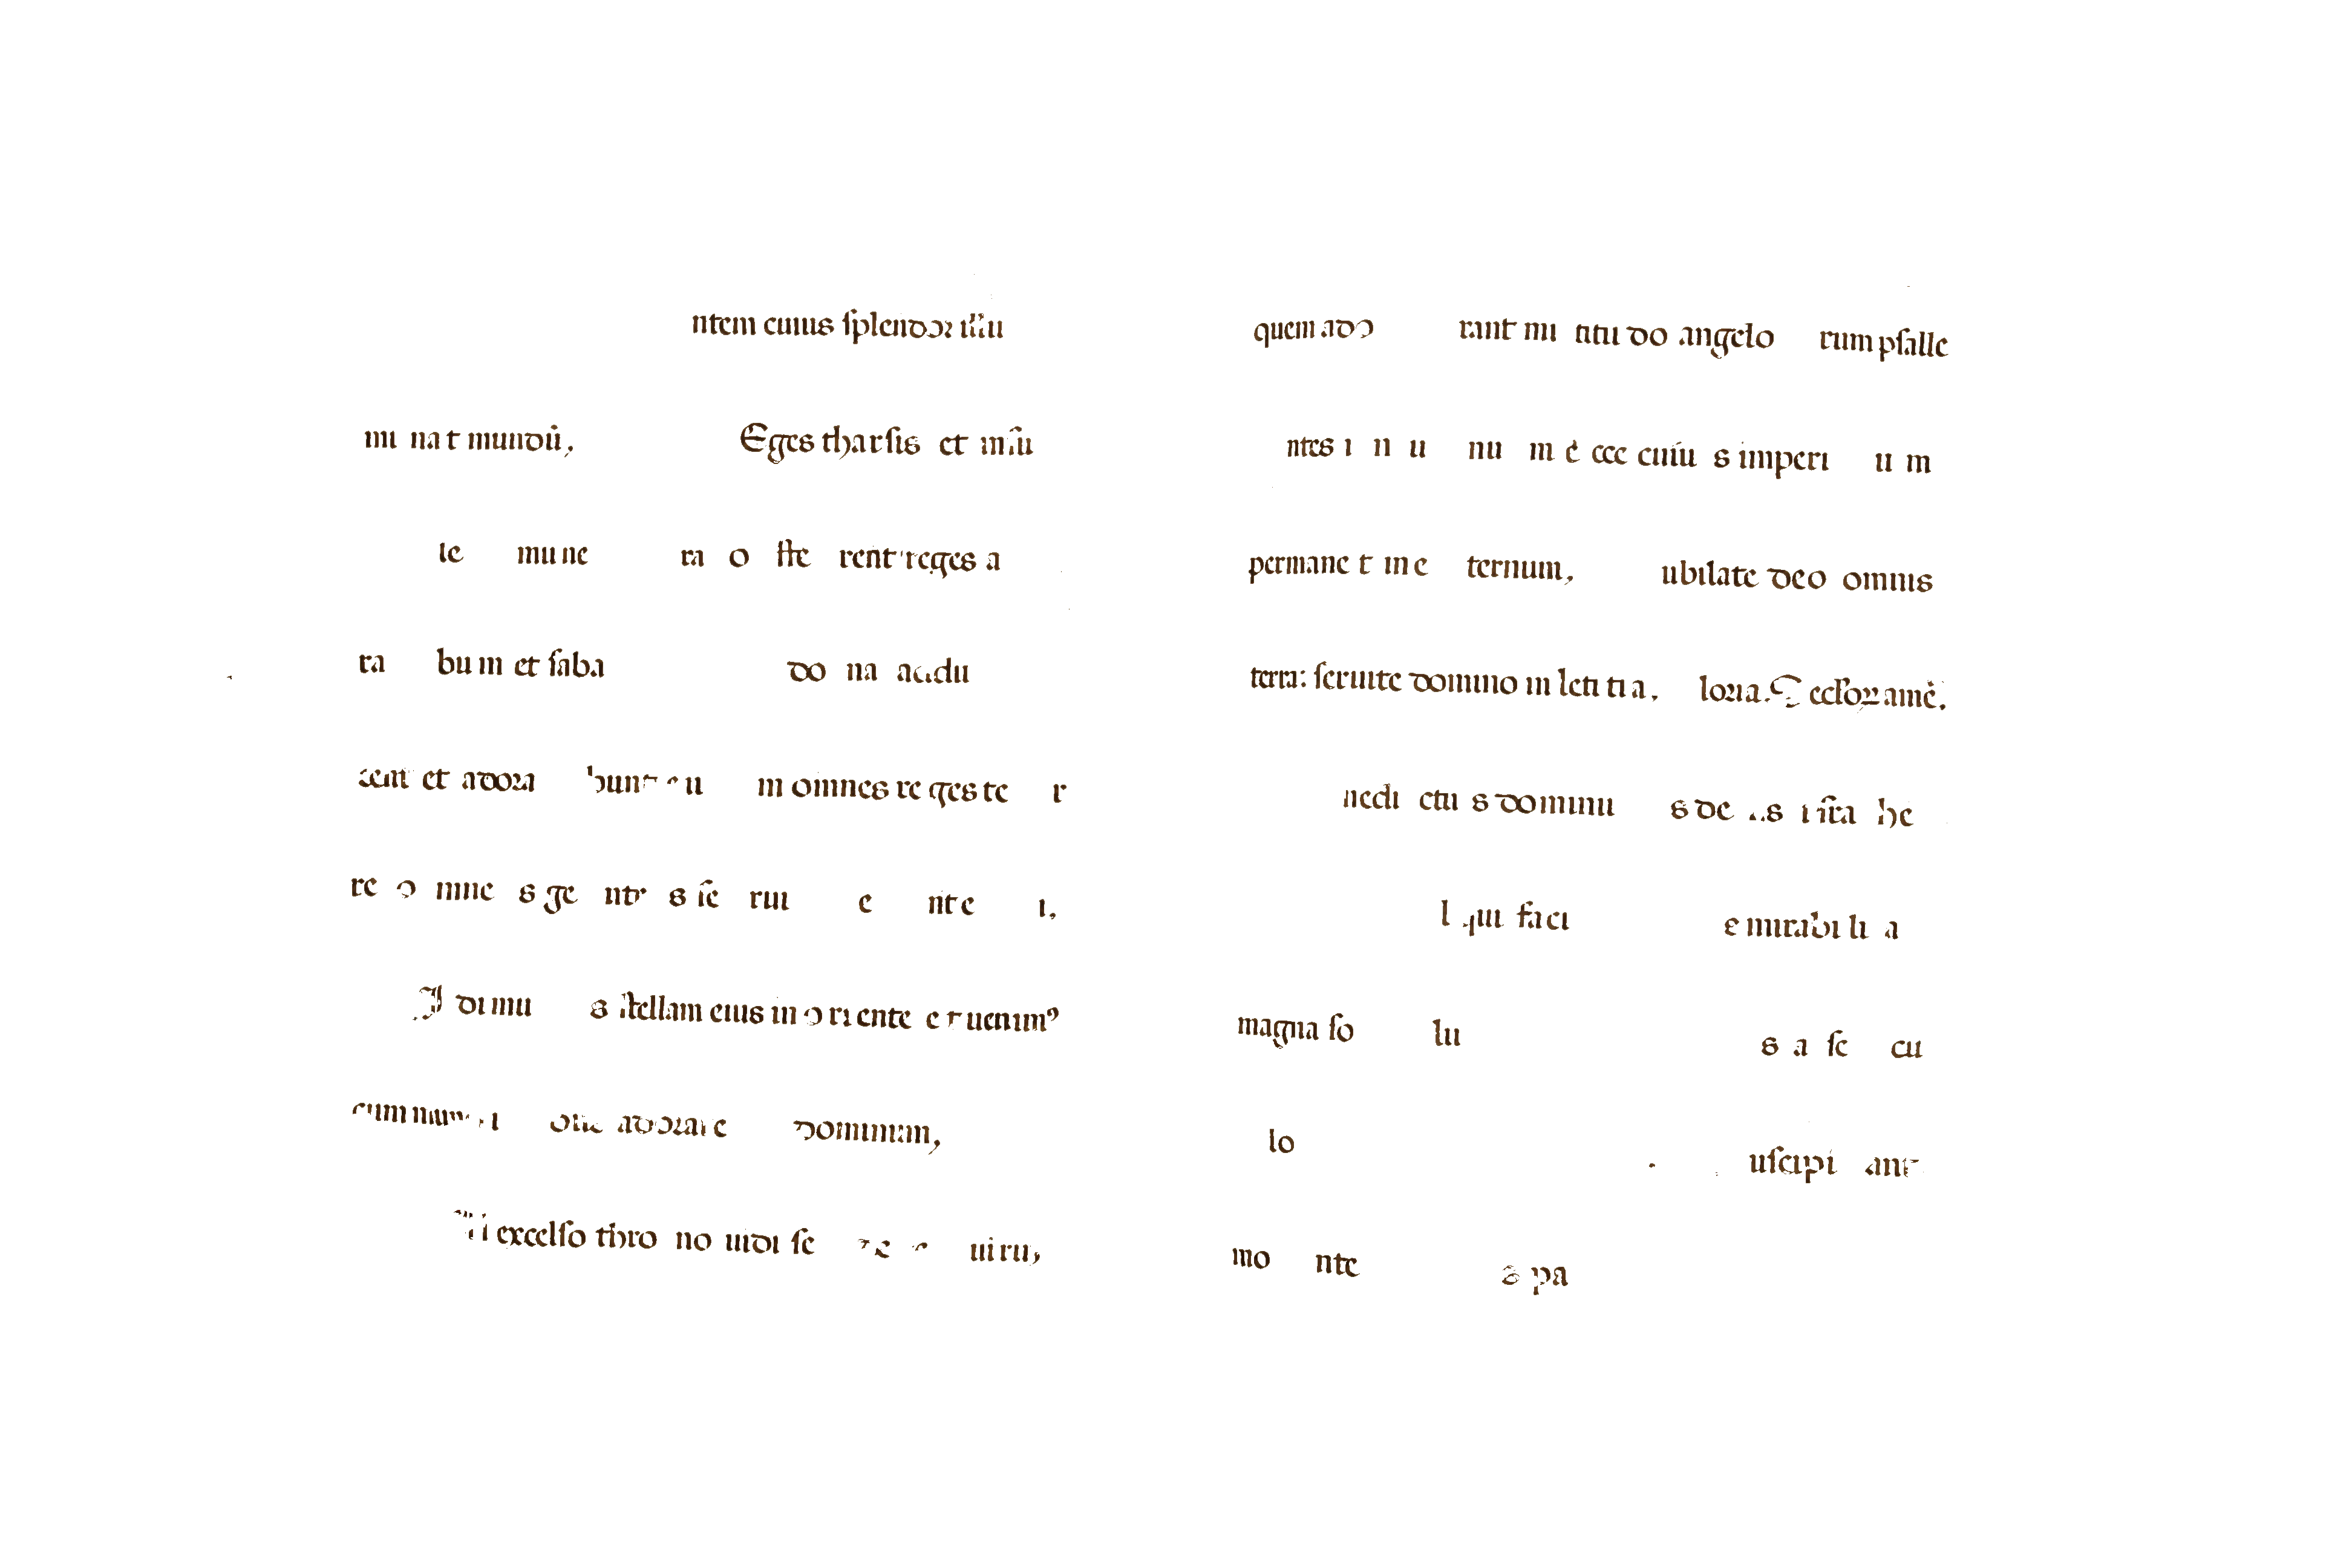 ntem cuius splendor illu
mi nat mundū, Eges tharsis et insu
le mune ra o ffe rent reges a
ra bum et saba do na addu
cent et adora bunt eu m omnes re ges te r
re o mne s ge nte s se rui e nte i.
I di mu s stellam eius in o ri ente e t uenim⁹
cum mune ri adorare dominum,
N excelso thro no uidi se re uiru,
quem ado rant mu titu do angelo rum psalle
ntes i n u nu m e cce cuiu s imperi u m
permane t in e ternum, ubilate deo omnis
terra: seruite domino in leti ti a. loria. secloꝝ amē.
nedi ctu s dominu s de us i sra he
l qui faci e mirabi li a
magna so lu s a se cu
lo uscipi ant
mo nte s pa